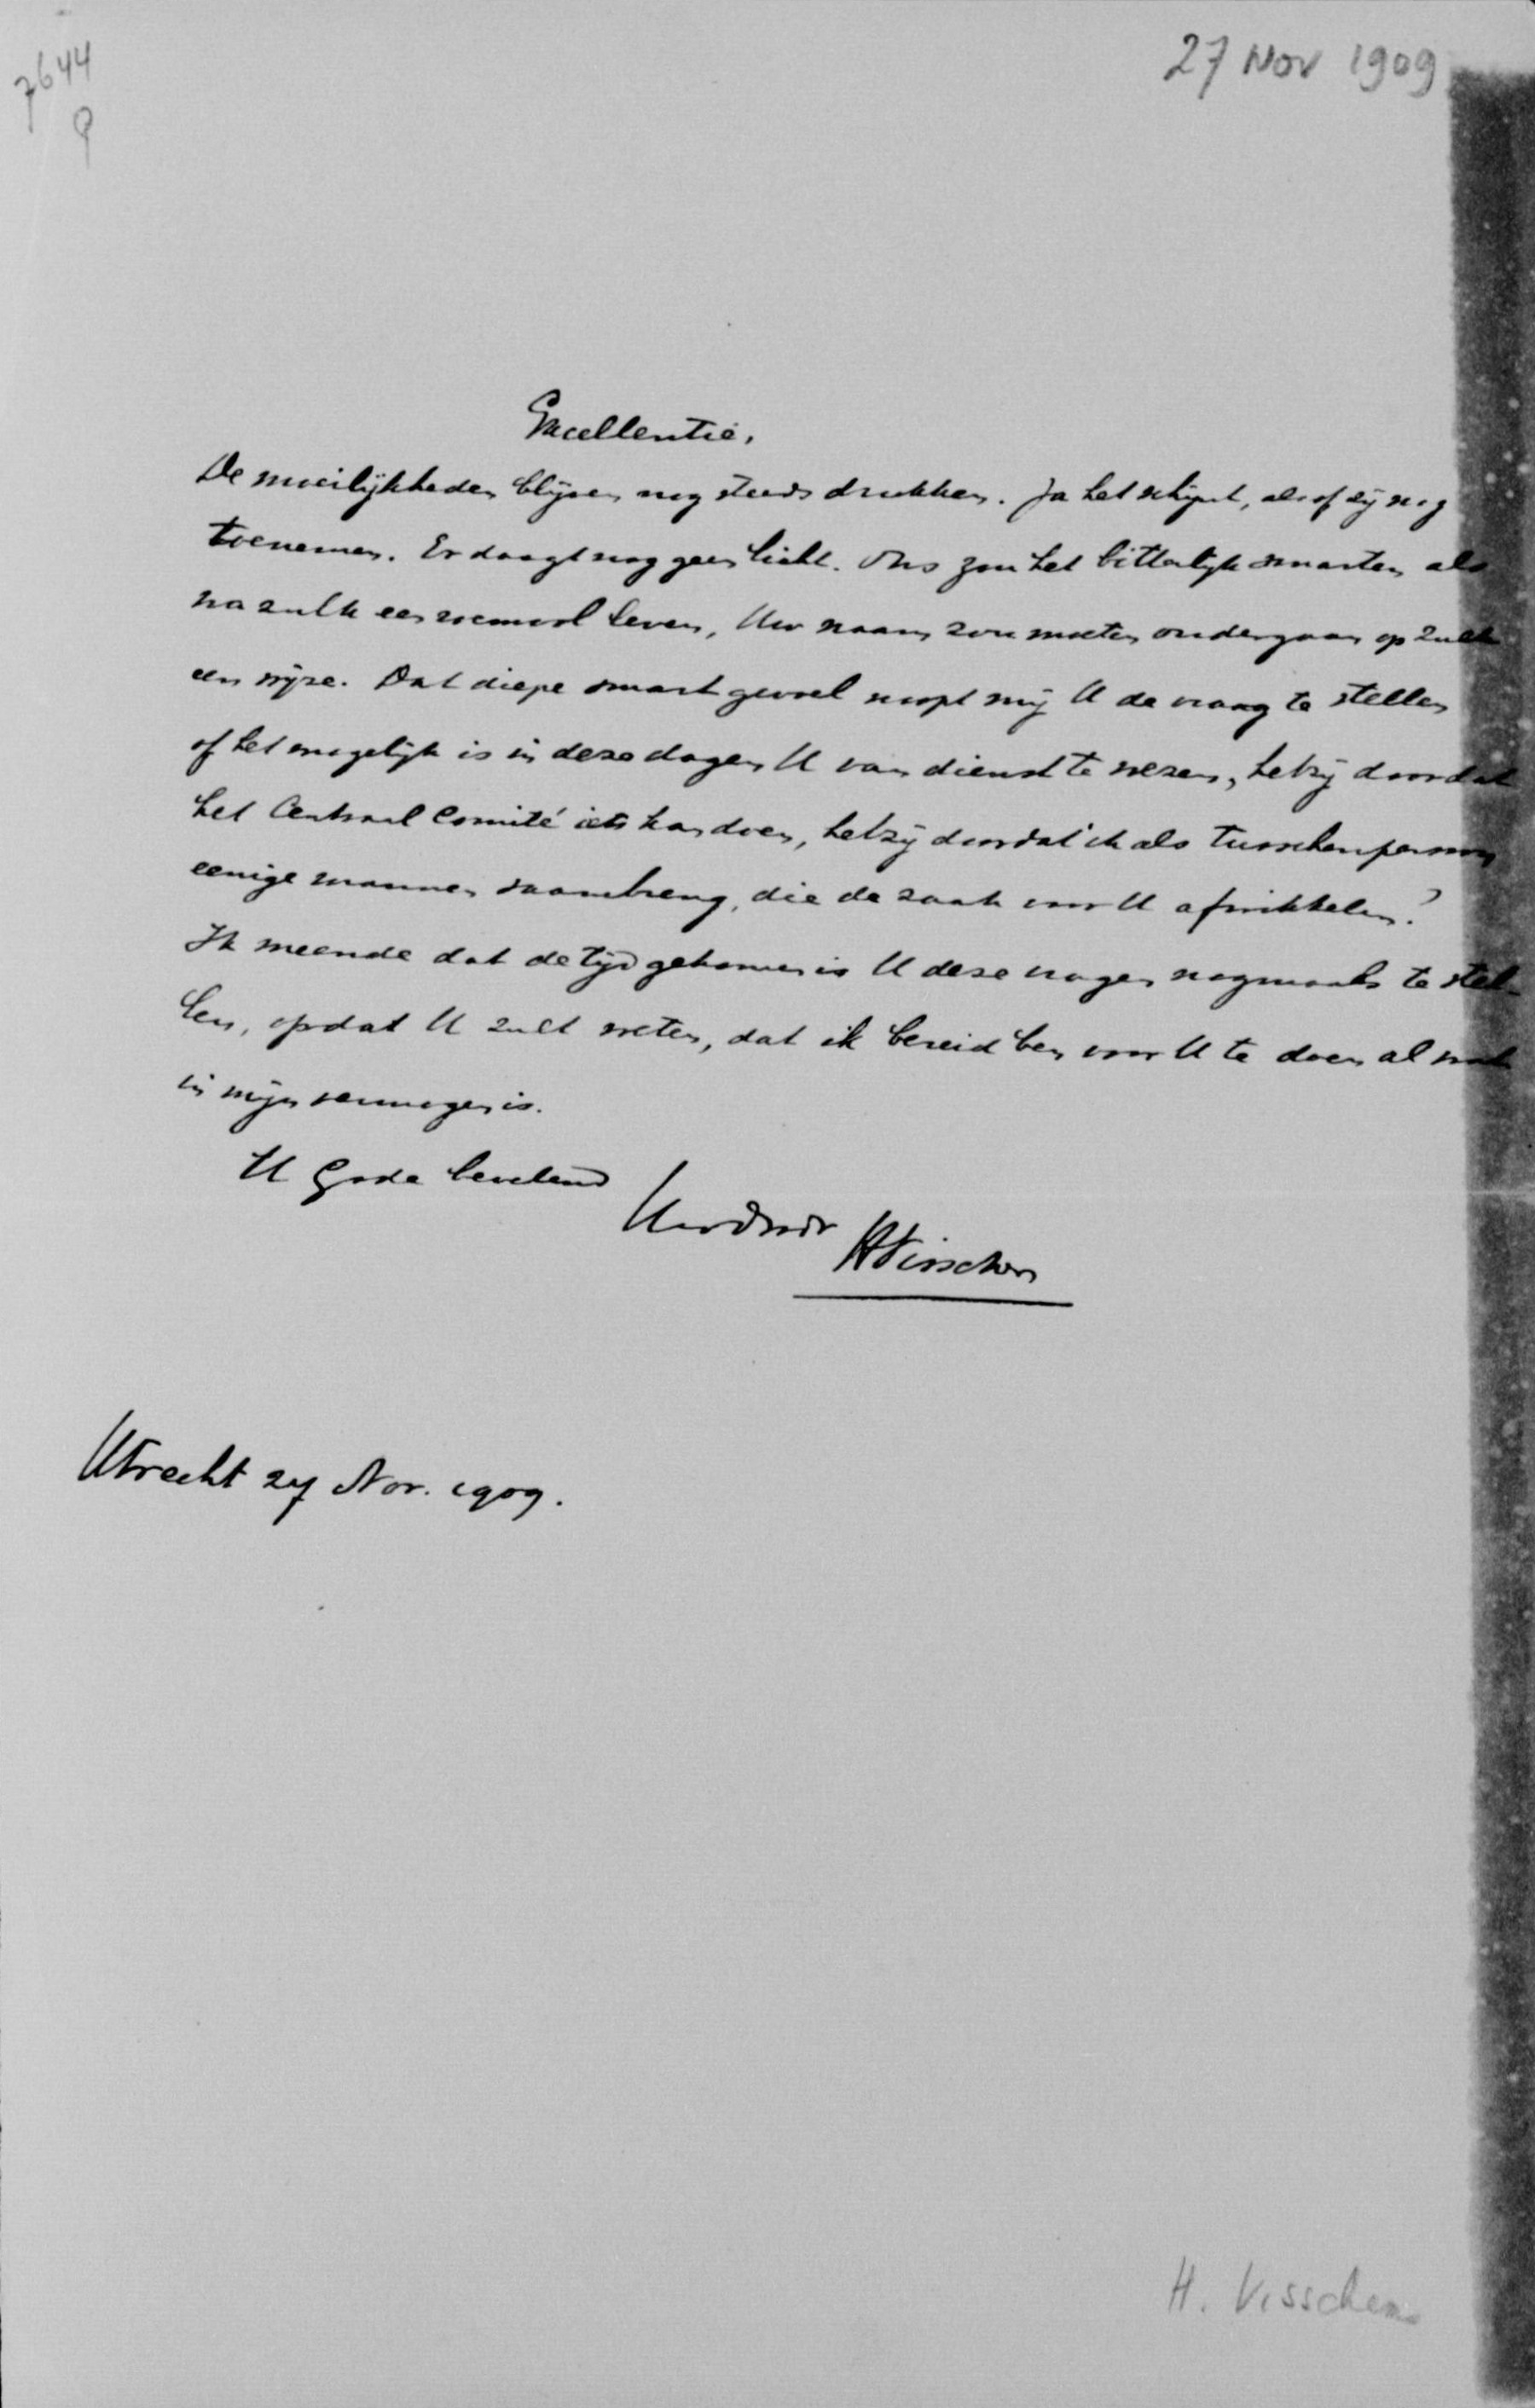 7644
27 Nov 1909
Excellentie,
De moeilijkheden blijven nog steeds drukken. Ja het schijnt, alsof zij nog
toenemen. Er daagt nog geen licht. Ons zou het bitterlijk smarten, als
na zulk een roemvol leven, Uw naam zou moeten ondergaan op zulk
een wijze. Dat diepe smartgevoel noopt mij U de vraag te stellen
of het mogelijk is in deze dagen U van dienst te wezen, hetzij doordat
het Centraal Comité iets kan doen, hetzij doordat ik als tusschenpersoon
eenige mannen saambreng, die de zaak voor U afwikkelen?
Ik meende dat de tijd gekomen is U deze vragen nogmaals te stel-
len, opdat U zult weten, dat ik bereid ben voor U te doen al wat
in mijn vermogen is.
U Gode bevelend
HVisscher
Utrecht 27 Nov. 1909.
H. Visscher